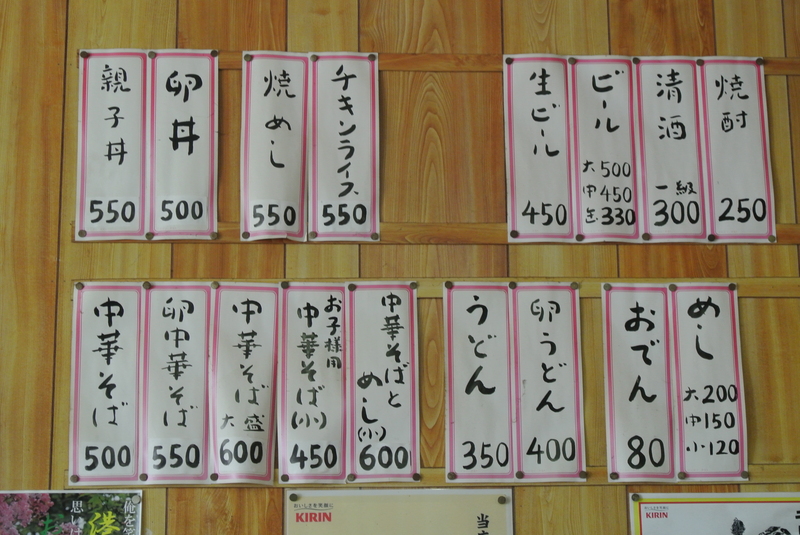 親子丼
550
卵丼
500
焼めし
550
チキンライス
550
生ビール
450
ビール
大500
中450
缶330
清酒
一級
300
焼酎
250
中華そば
500
卵中華そば
550
中華そば
大盛
600
お子様用
中華そば(小)
450
中華そばと
めし(小)
600
うどん
350
卵うどん
400
おでん
80
めし
大200
中150
小120
俺を
思い
おいしさを笑顔に
KIRIN
当
おいしさを笑顔に
KIRIN